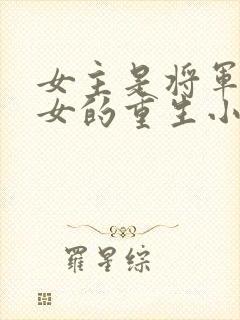 女主是将軍
女的重生小
羅星綜